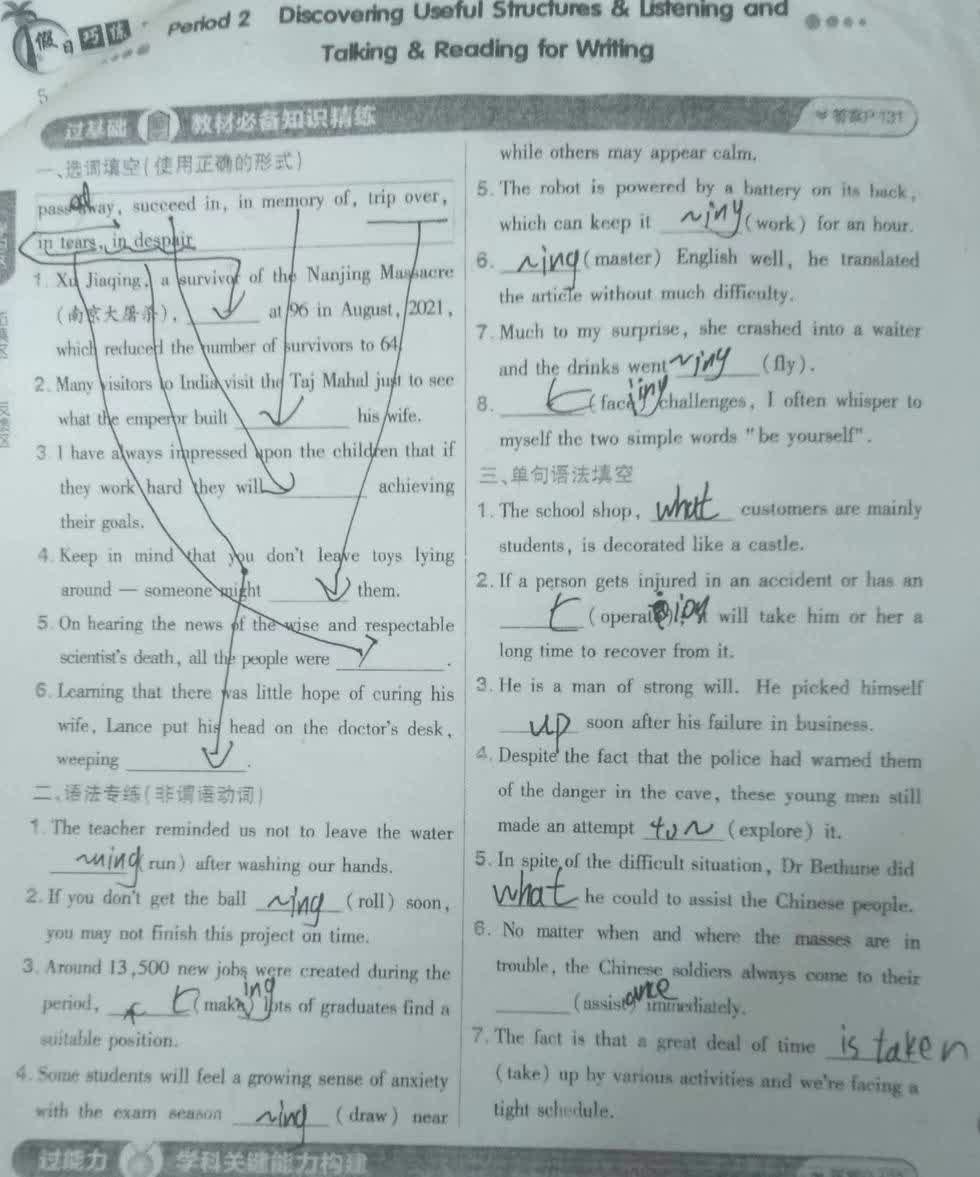 假日巧练 Period 2 Discovering Useful Structures & Listening and
Talking & Reading for Writing
过基础 教材必备知识精练 答案P131
一、选词填空(使用正确的形式)
pass away, succeed in, in memory of, trip over,
in tears, in despair
1. Xu Jiaqing, a survivor of the Nanjing Massacre
(南京大屠杀), ______ at 96 in August, 2021,
which reduced the number of survivors to 64.
2. Many visitors to India visit the Taj Mahal just to see
what the emperor built ______ his wife.
3. I have always impressed upon the children that if
they work hard they will ______ achieving
their goals.
4. Keep in mind that you don't leave toys lying
around — someone might ______ them.
5. On hearing the news of the wise and respectable
scientist's death, all the people were ______.
6. Learning that there was little hope of curing his
wife, Lance put his head on the doctor's desk,
weeping ______.
二、语法专练(非谓语动词)
1. The teacher reminded us not to leave the water
ning (run) after washing our hands.
2. If you don't get the ball ~ing (roll) soon,
you may not finish this project on time.
3. Around 13,500 new jobs were created during the
period, ______ (make) ing lots of graduates find a
suitable position.
4. Some students will feel a growing sense of anxiety
with the exam season ~ing (draw) near
while others may appear calm.
5. The robot is powered by a battery on its back,
which can keep it ~ing (work) for an hour.
6. ~ing (master) English well, he translated
the article without much difficulty.
7. Much to my surprise, she crashed into a waiter
and the drinks went ~ing (fly).
8. ______ (face) ing challenges, I often whisper to
myself the two simple words "be yourself".
三、单句语法填空
1. The school shop, what customers are mainly
students, is decorated like a castle.
2. If a person gets injured in an accident or has an
______ (operate) ion will take him or her a
long time to recover from it.
3. He is a man of strong will. He picked himself
up soon after his failure in business.
4. Despite the fact that the police had warned them
of the danger in the cave, these young men still
made an attempt to ~ (explore) it.
5. In spite of the difficult situation, Dr Bethune did
what he could to assist the Chinese people.
6. No matter when and where the masses are in
trouble, the Chinese soldiers always come to their
______ (assist) ance immediately.
7. The fact is that a great deal of time is taken
(take) up by various activities and we're facing a
tight schedule.
过能力 学科关键能力构建